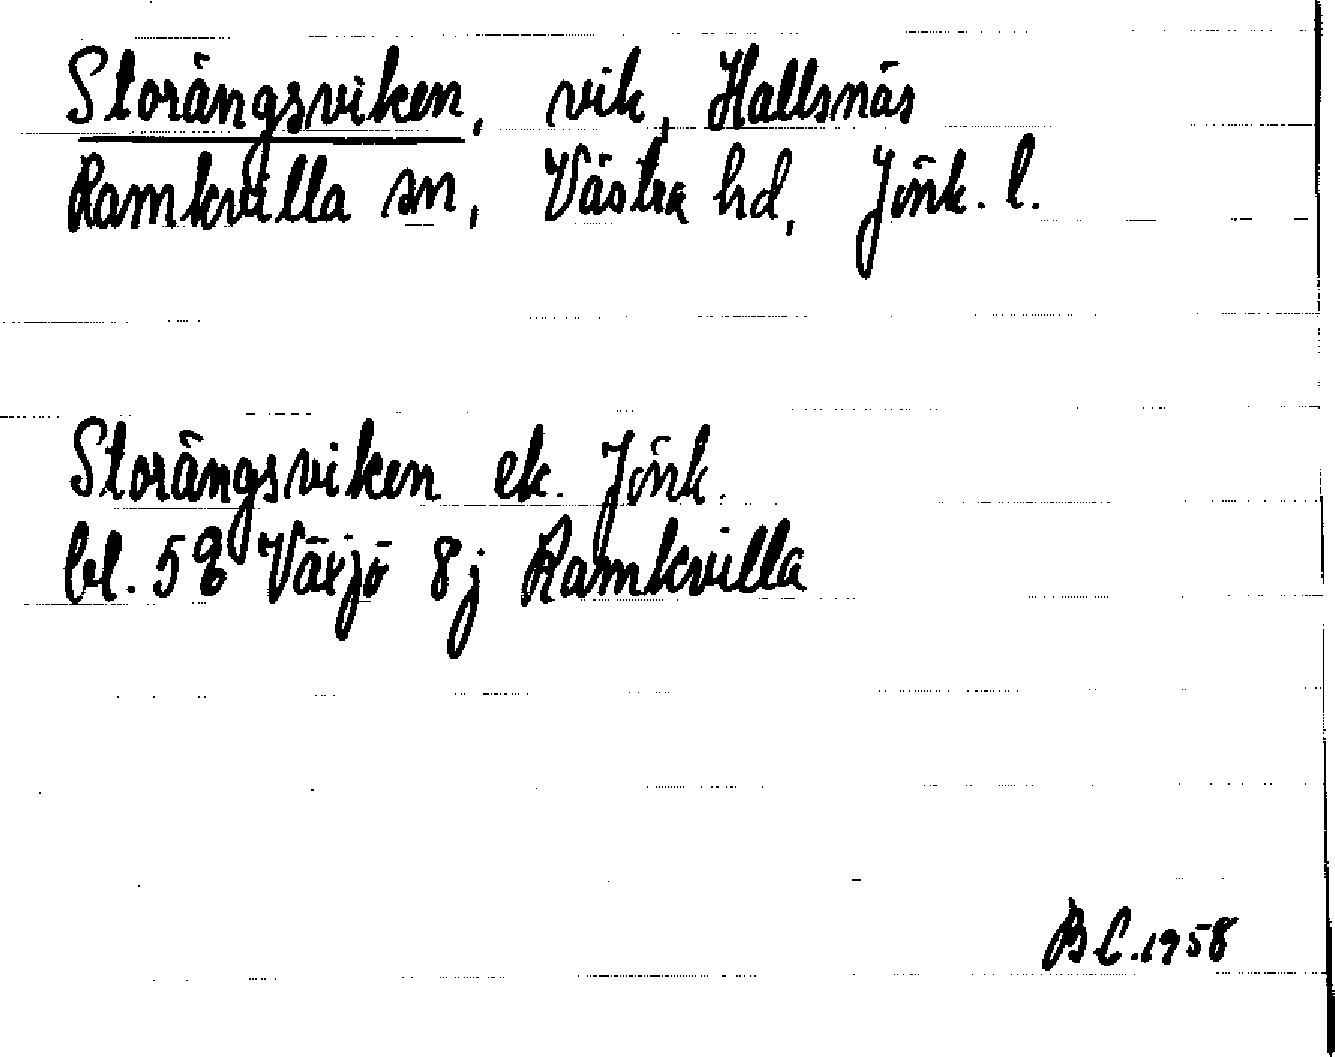 Storängsviken, vik, Hallsnäs
Ramkvilla sn, Västra hd, Jönk. l.
Storängsviken ek. Jönk.
bl. 52 Växjö 8j Ramkvilla
BL.1958